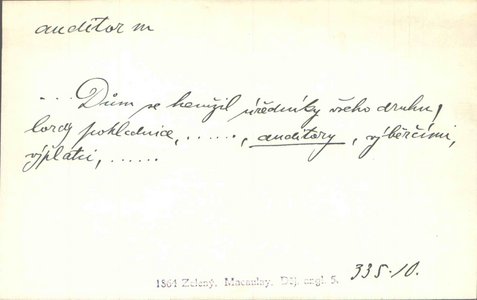 auditor m
... Dům se hemžil úředníky všeho druhu,
lordy pokladnice, ......, auditory, výběrčími,
výplatci, ......
1864 Zelený. Macaulay. Děj. angl. 5. 335.10.